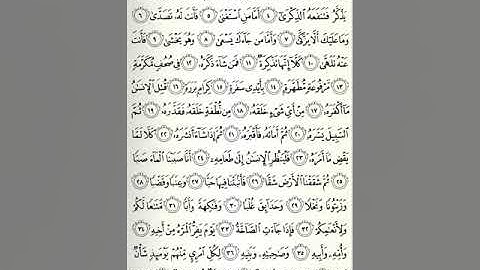 يَذَّكَّرُ فَتَنفَعَهُ ٱلذِّكْرَىٰٓ ٤ أَمَّا مَنِ ٱسْتَغْنَىٰ ٥ فَأَنتَ لَهُۥ تَصَدَّىٰ ٦
وَمَا عَلَيْكَ أَلَّا يَزَّكَّىٰ ٧ وَأَمَّا مَن جَآءَكَ يَسْعَىٰ ٨ وَهُوَ يَخْشَىٰ ٩ فَأَنتَ
عَنْهُ تَلَهَّىٰ ١٠ كَلَّآ إِنَّهَا تَذْكِرَةٌ ١١ فَمَن شَآءَ ذَكَرَهُۥ ١٢ فِى صُحُفٍ مُّكَرَّمَةٍ
١٣ مَّرْفُوعَةٍ مُّطَهَّرَةٍۭ ١٤ بِأَيْدِى سَفَرَةٍ ١٥ كِرَامٍۭ بَرَرَةٍ ١٦ قُتِلَ ٱلْإِنسَـٰنُ
مَآ أَكْفَرَهُۥ ١٧ مِنْ أَىِّ شَىْءٍ خَلَقَهُۥ ١٨ مِن نُّطْفَةٍ خَلَقَهُۥ فَقَدَّرَهُۥ ١٩ ثُمَّ
ٱلسَّبِيلَ يَسَّرَهُۥ ٢٠ ثُمَّ أَمَاتَهُۥ فَأَقْبَرَهُۥ ٢١ ثُمَّ إِذَا شَآءَ أَنشَرَهُۥ ٢٢ كَلَّا لَمَّا
يَقْضِ مَآ أَمَرَهُۥ ٢٣ فَلْيَنظُرِ ٱلْإِنسَـٰنُ إِلَىٰ طَعَامِهِۦٓ ٢٤ أَنَّا صَبَبْنَا ٱلْمَآءَ صَبًّا
٢٥ ثُمَّ شَقَقْنَا ٱلْأَرْضَ شَقًّا ٢٦ فَأَنۢبَتْنَا فِيهَا حَبًّا ٢٧ وَعِنَبًا وَقَضْبًا ٢٨
وَزَيْتُونًا وَنَخْلًا ٢٩ وَحَدَآئِقَ غُلْبًا ٣٠ وَفَـٰكِهَةً وَأَبًّا ٣١ مَّتَـٰعًا لَّكُمْ
وَلِأَنْعَـٰمِكُمْ ٣٢ فَإِذَا جَآءَتِ ٱلصَّآخَّةُ ٣٣ يَوْمَ يَفِرُّ ٱلْمَرْءُ مِنْ أَخِيهِ ٣٤
وَأُمِّهِۦ وَأَبِيهِ ٣٥ وَصَـٰحِبَتِهِۦ وَبَنِيهِ ٣٦ لِكُلِّ ٱمْرِئٍ مِّنْهُمْ يَوْمَئِذٍ شَأْنٌ